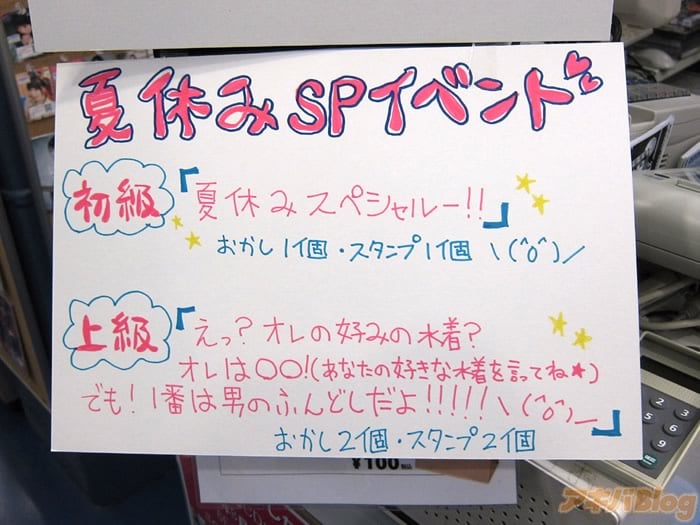 夏休みSPイベント♡♡
初級
『夏休みスペシャルー!!』
おかし1個・スタンプ1個 \(^o^)/
上級
『えっ?オレの好みの水着?
オレは〇〇!(あなたの好きな水着を言ってね★)
でも!1番は男のふんどしだよ!!!!!\(^o^)_』
おかし2個・スタンプ2個
¥100
アキバBlog
2
3
5
6
8
9